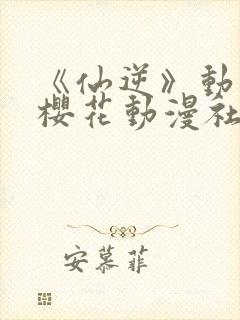 《仙逆》動
櫻花動漫社
安慕菲